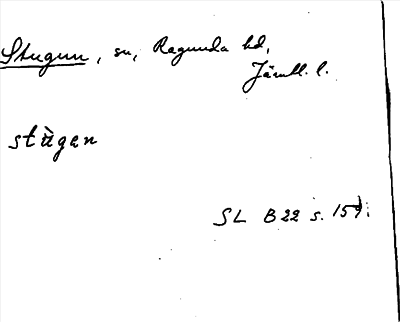 Stugun, sn, Ragunda hd,
Jämtl. l.
stùgen
SL B 22 s. 159;